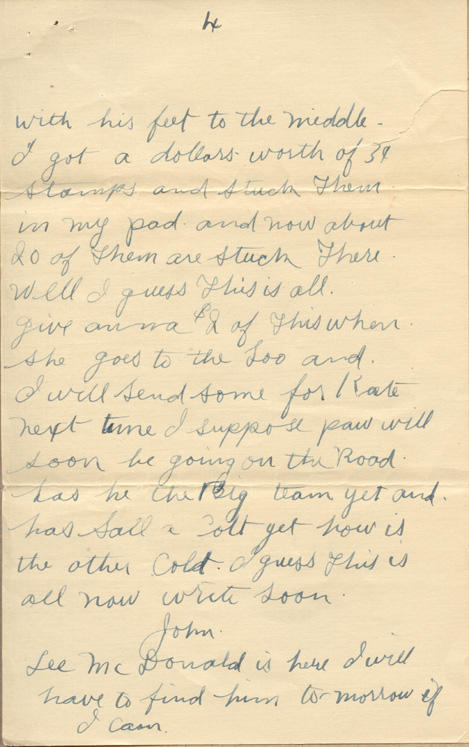 4
with his feet to the middle.
I got a dollars worth of 3¢
stamps and stuck Them
in my pad. and now about
20 of Them are stuck There.
Well I guess This is all.
give anna $2 of This when.
she goes to the Soo and.
I will send some for Kate
next time I suppose paw will
soon be going on the Road.
has he the Big team yet and.
has Sall a Colt yet how is
the other Cold. I guess This is
all now write soon.
John.
Lee McDonald is here I will
have to find him to-morrow if
I can.